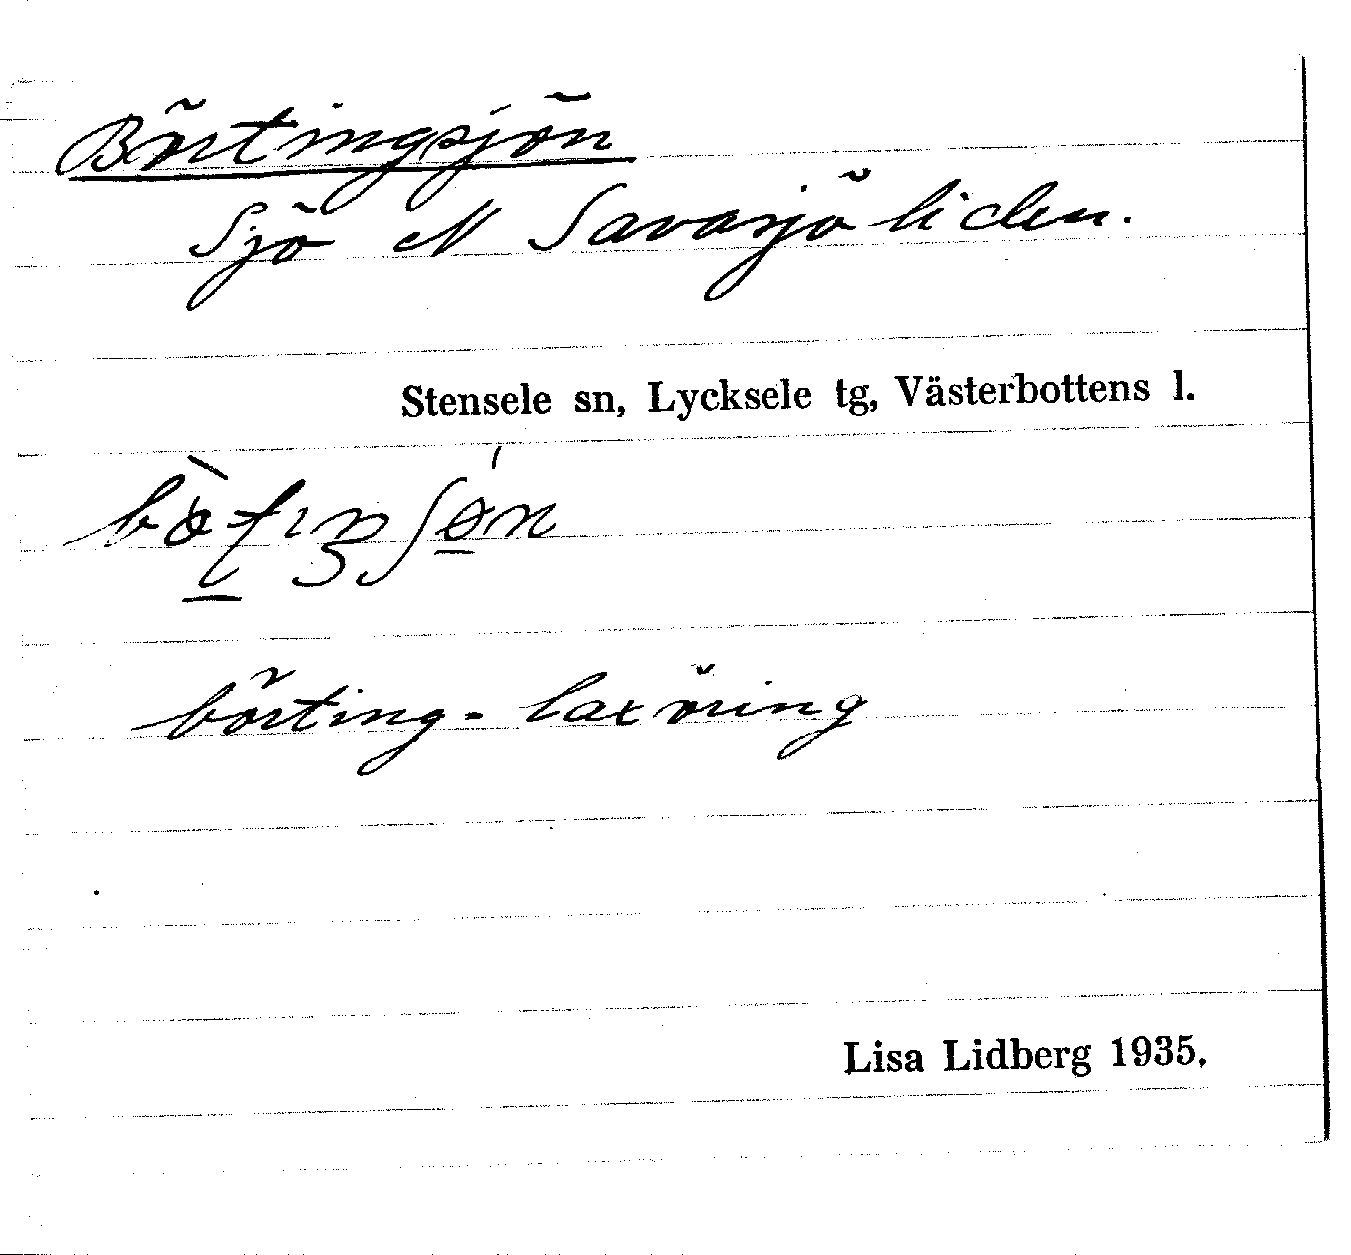 Börtingsjön
Sjö N Savasjöliden.
Stensele sn, Lycksele tg, Västerbottens l.
börting = laxöring
Lisa Lidberg 1935.